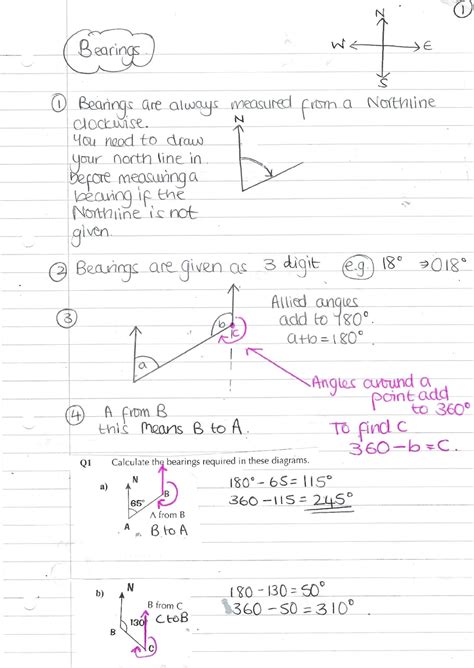 1
N
W E
S
Bearings
1 Bearings are always measured from a Northline
clockwise.
N
You need to draw
your north line in
before measuring a
bearing if the
Northline is not
given.
2 Bearings are given as 3 digit e.g. 18° ⇒ 018°
3
a
b
c
Allied angles
add to 180°.
a+b=180°.
Angles around a
point add
to 360°
To find c
360-b=c.
4 A from B
this means B to A.
Q1 Calculate the bearings required in these diagrams.
a) N
65°
B
A
A from B
B to A
180°-65=115°
360-115=245°
b) N
130°
B
C
B from C
C to B
180-130=50°
360-50=310°